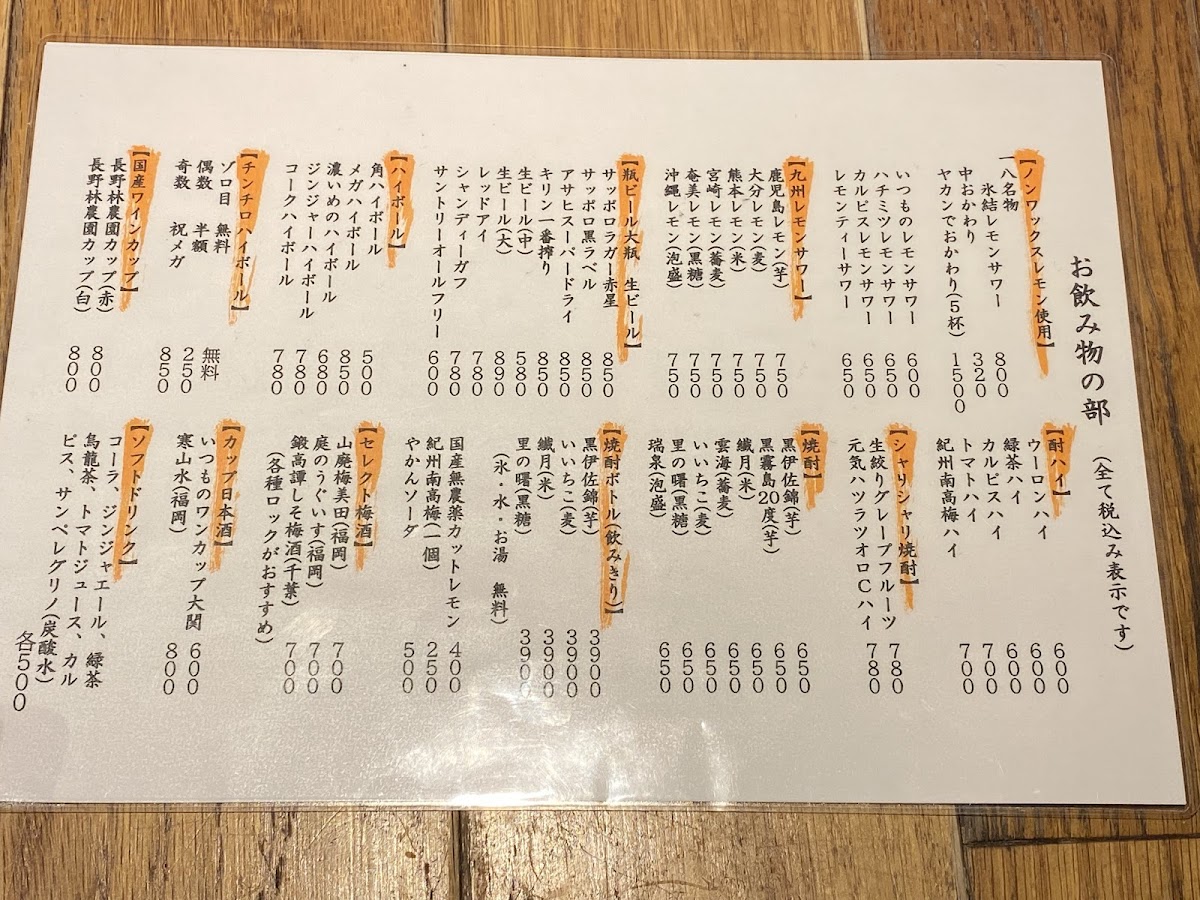 お飲み物の部 (全て税込み表示です)
【ノンワックスレモン使用】
一八名物
氷結レモンサワー 800
中おかわり 320
ヤカンでおかわり(5杯) 1500
いつものレモンサワー 600
ハチミツレモンサワー 650
カルピスレモンサワー 650
レモンティーサワー 650
【九州レモンサワー】
鹿児島レモン(芋) 750
大分レモン(麦) 750
熊本レモン(米) 750
宮崎レモン(蕎麦) 750
奄美レモン(黒糖) 750
沖縄レモン(泡盛) 750
【瓶ビール大瓶 生ビール】
サッポロラガー赤星 850
サッポロ黒ラベル 850
アサヒスーパードライ 850
キリン一番搾り 850
生ビール(中) 580
生ビール(大) 890
レッドアイ 780
シャンディーガフ 780
サントリーオールフリー 600
【ハイボール】
角ハイボール 500
メガハイボール 850
濃いめのハイボール 680
ジンジャーハイボール 780
コークハイボール 780
【チンチロハイボール】
ゾロ目 無料 無料
偶数 半額 250
奇数 祝メガ 850
【国産ワインカップ】
長野林農園カップ(赤) 800
長野林農園カップ(白) 800
【酎ハイ】
ウーロンハイ 600
緑茶ハイ 600
カルピスハイ 600
トマトハイ 700
紀州南高梅ハイ 700
【シャリシャリ焼酎】
生絞りグレープフルーツ 780
元気ハツラツオロCハイ 780
【焼酎】
黒伊佐錦(芋) 650
黒霧島20度(芋) 650
繊月(米) 650
雲海(蕎麦) 650
いいちこ(麦) 650
里の曙(黒糖) 650
瑞泉(泡盛) 650
【焼酎ボトル(飲みきり)】
黒伊佐錦(芋) 3900
いいちこ(麦) 3900
繊月(米) 3900
里の曙(黒糖) 3900
(氷・水・お湯 無料)
国産無農薬カットレモン 400
紀州南高梅(一個) 250
やかんソーダ 500
【セレクト梅酒】
山廃梅美田(福岡) 700
庭のうぐいす(福岡) 700
鍛高譚しそ梅酒(千葉) 700
(各種ロックがおすすめ)
【カップ日本酒】
いつものワンカップ大関 600
寒山水(福岡) 800
【ソフトドリンク】
コーラ、ジンジャエール、緑茶
烏龍茶、トマトジュース、カル
ピス、サンペレグリノ(炭酸水)
各500